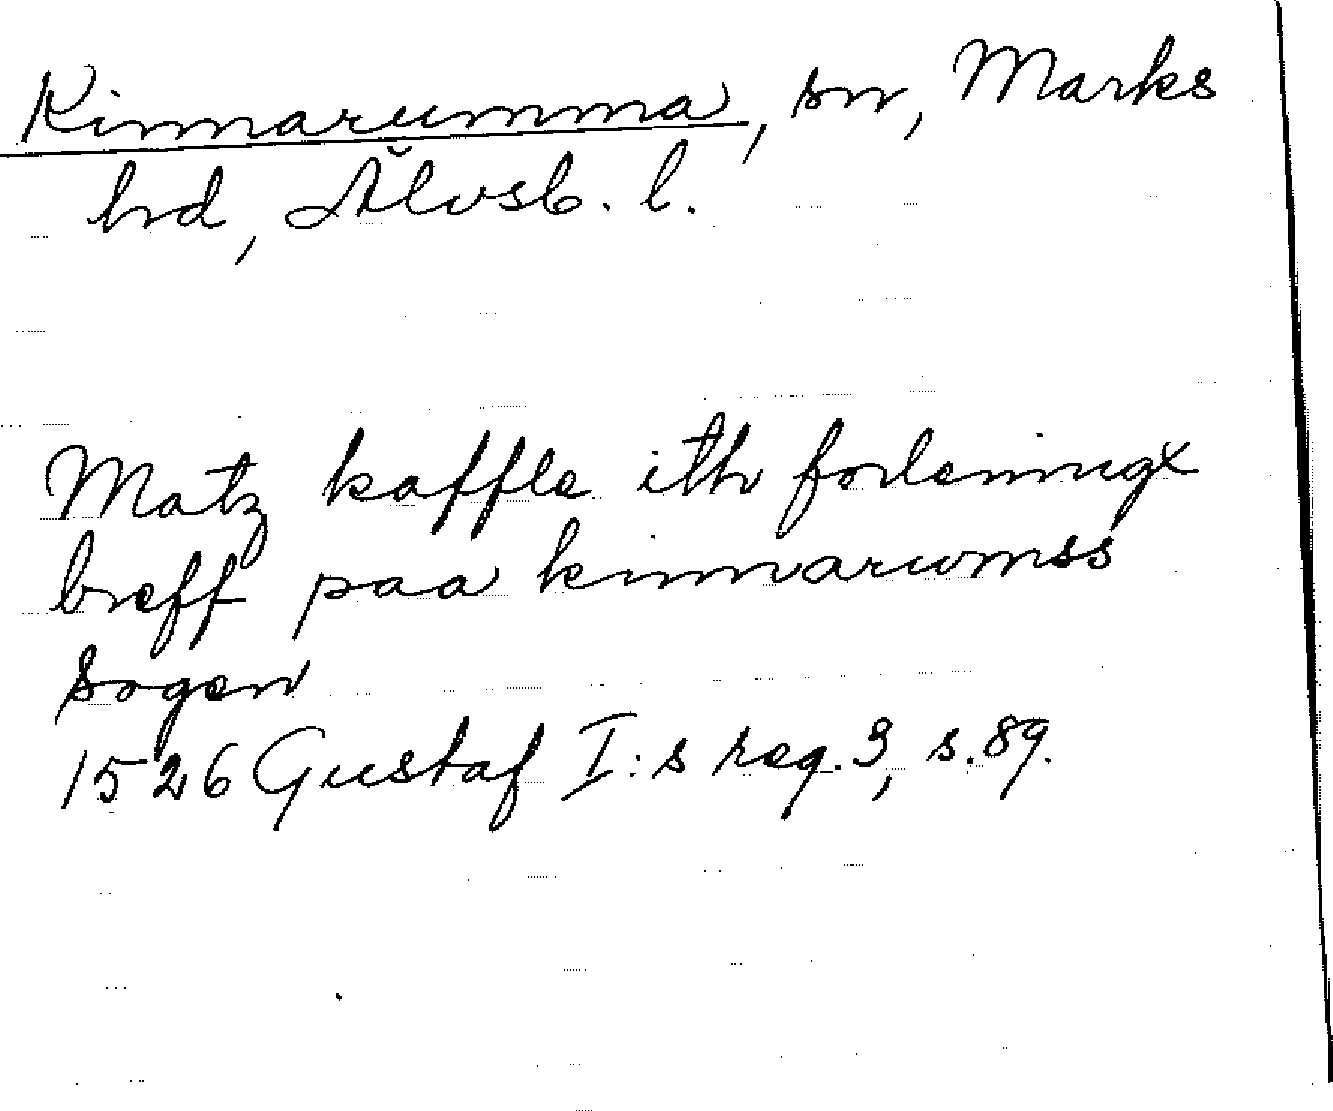 Kinnarumma, sn, Marks
hd, Älvsb. l.
Matz kaffle ith forleningx
breff paa kinnarwmss
sogen
1526 Gustaf I:s reg. 3, s. 89.